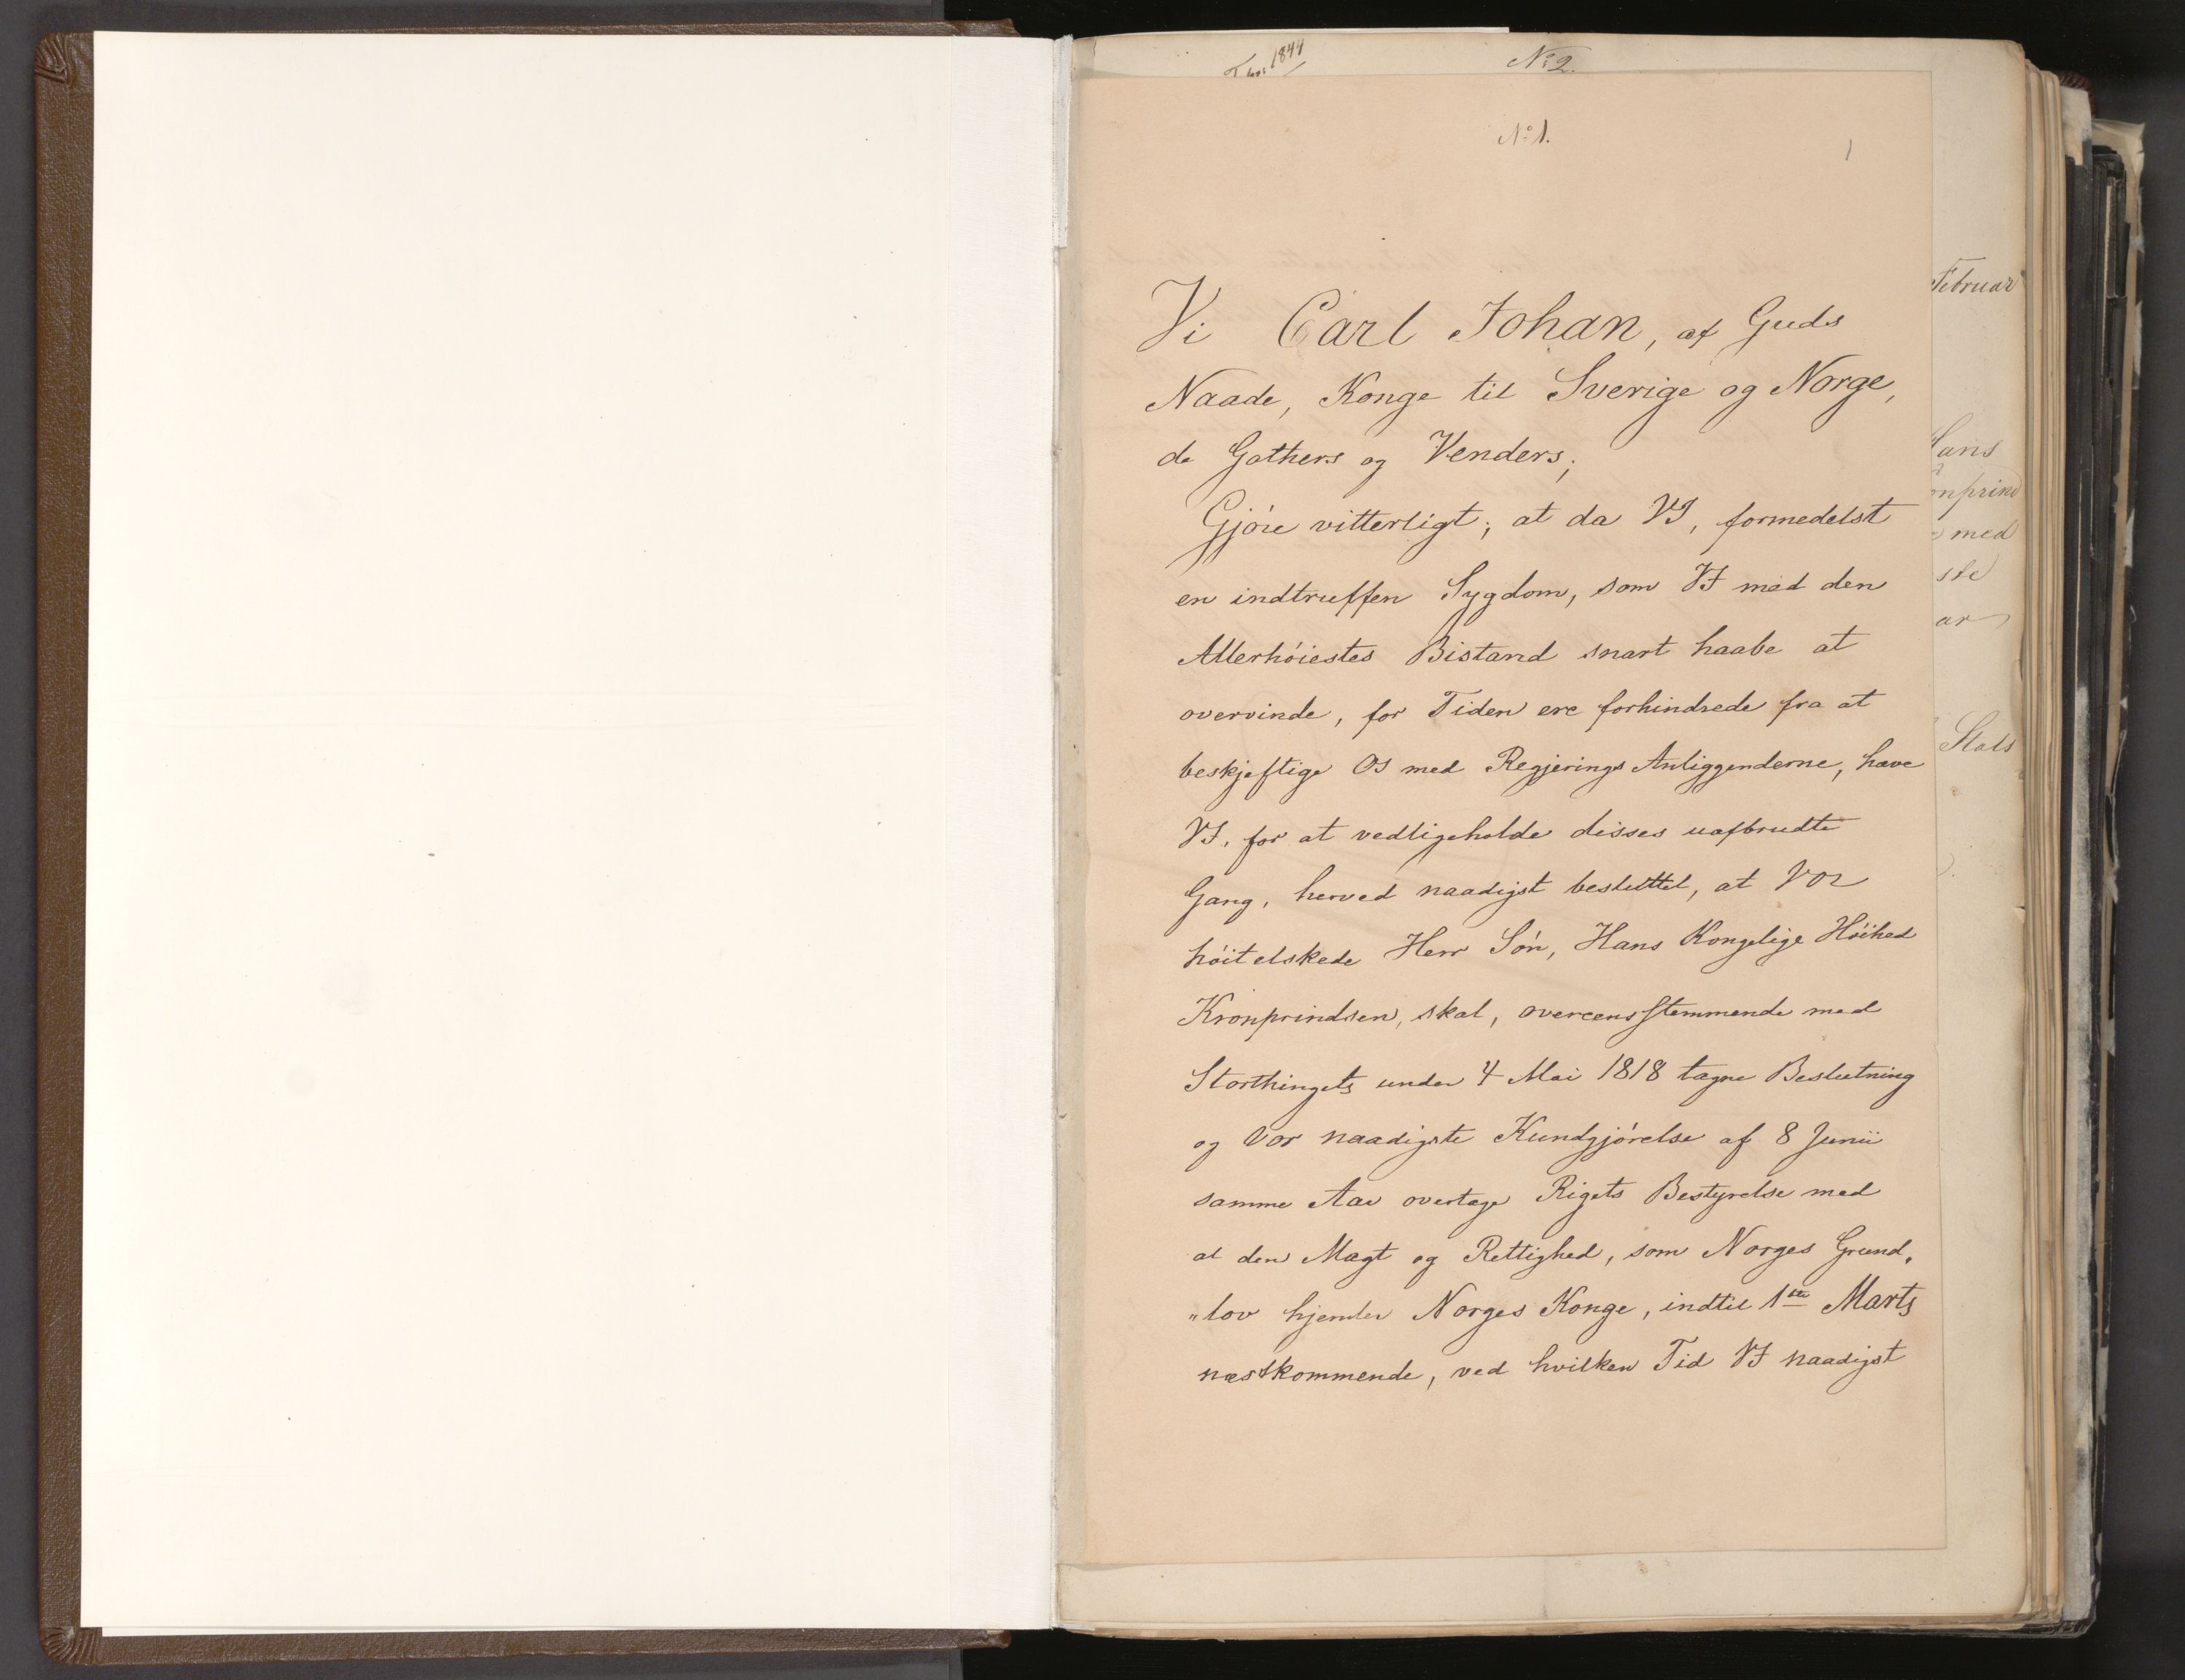 1844
No 2.
No 1.
1
Vi Carl Johan, af Guds
Naade, Konge til Sverige og Norge,
de Gothers og Venders;
Gjöre vitterligt; at da VI, formedelst
en indtruffen Sygdom, som VI med den
Allerhöiestes Bistand snart haabe at
overvinde, for Tiden ere forhindrede fra at
beskjeftige OS med Regjerings Anliggenderne, have
VI, for at vedligeholde disses uafbrudte
Gang, herved naadigst besluttet, at VOR
höit elskede Herr Sön, Hans Kongelige Höihed
Kronprindsen, skal, overeensstemmende med
Storthingets under 4 Mai 1818 tagne Beslutning
og Vor naadigste Kundgjörelse af 8 Junii
samme Aar overtage Rigets Bestyrelse med
al den Magt og Rettighed, som Norges Grund„
„lov hjemler Norges Konge, indtil 1ste Marts
næstkommende, ved hvilken Tid VI naadigst
Februar
Hans
onprind
med
ste
ar
Stats